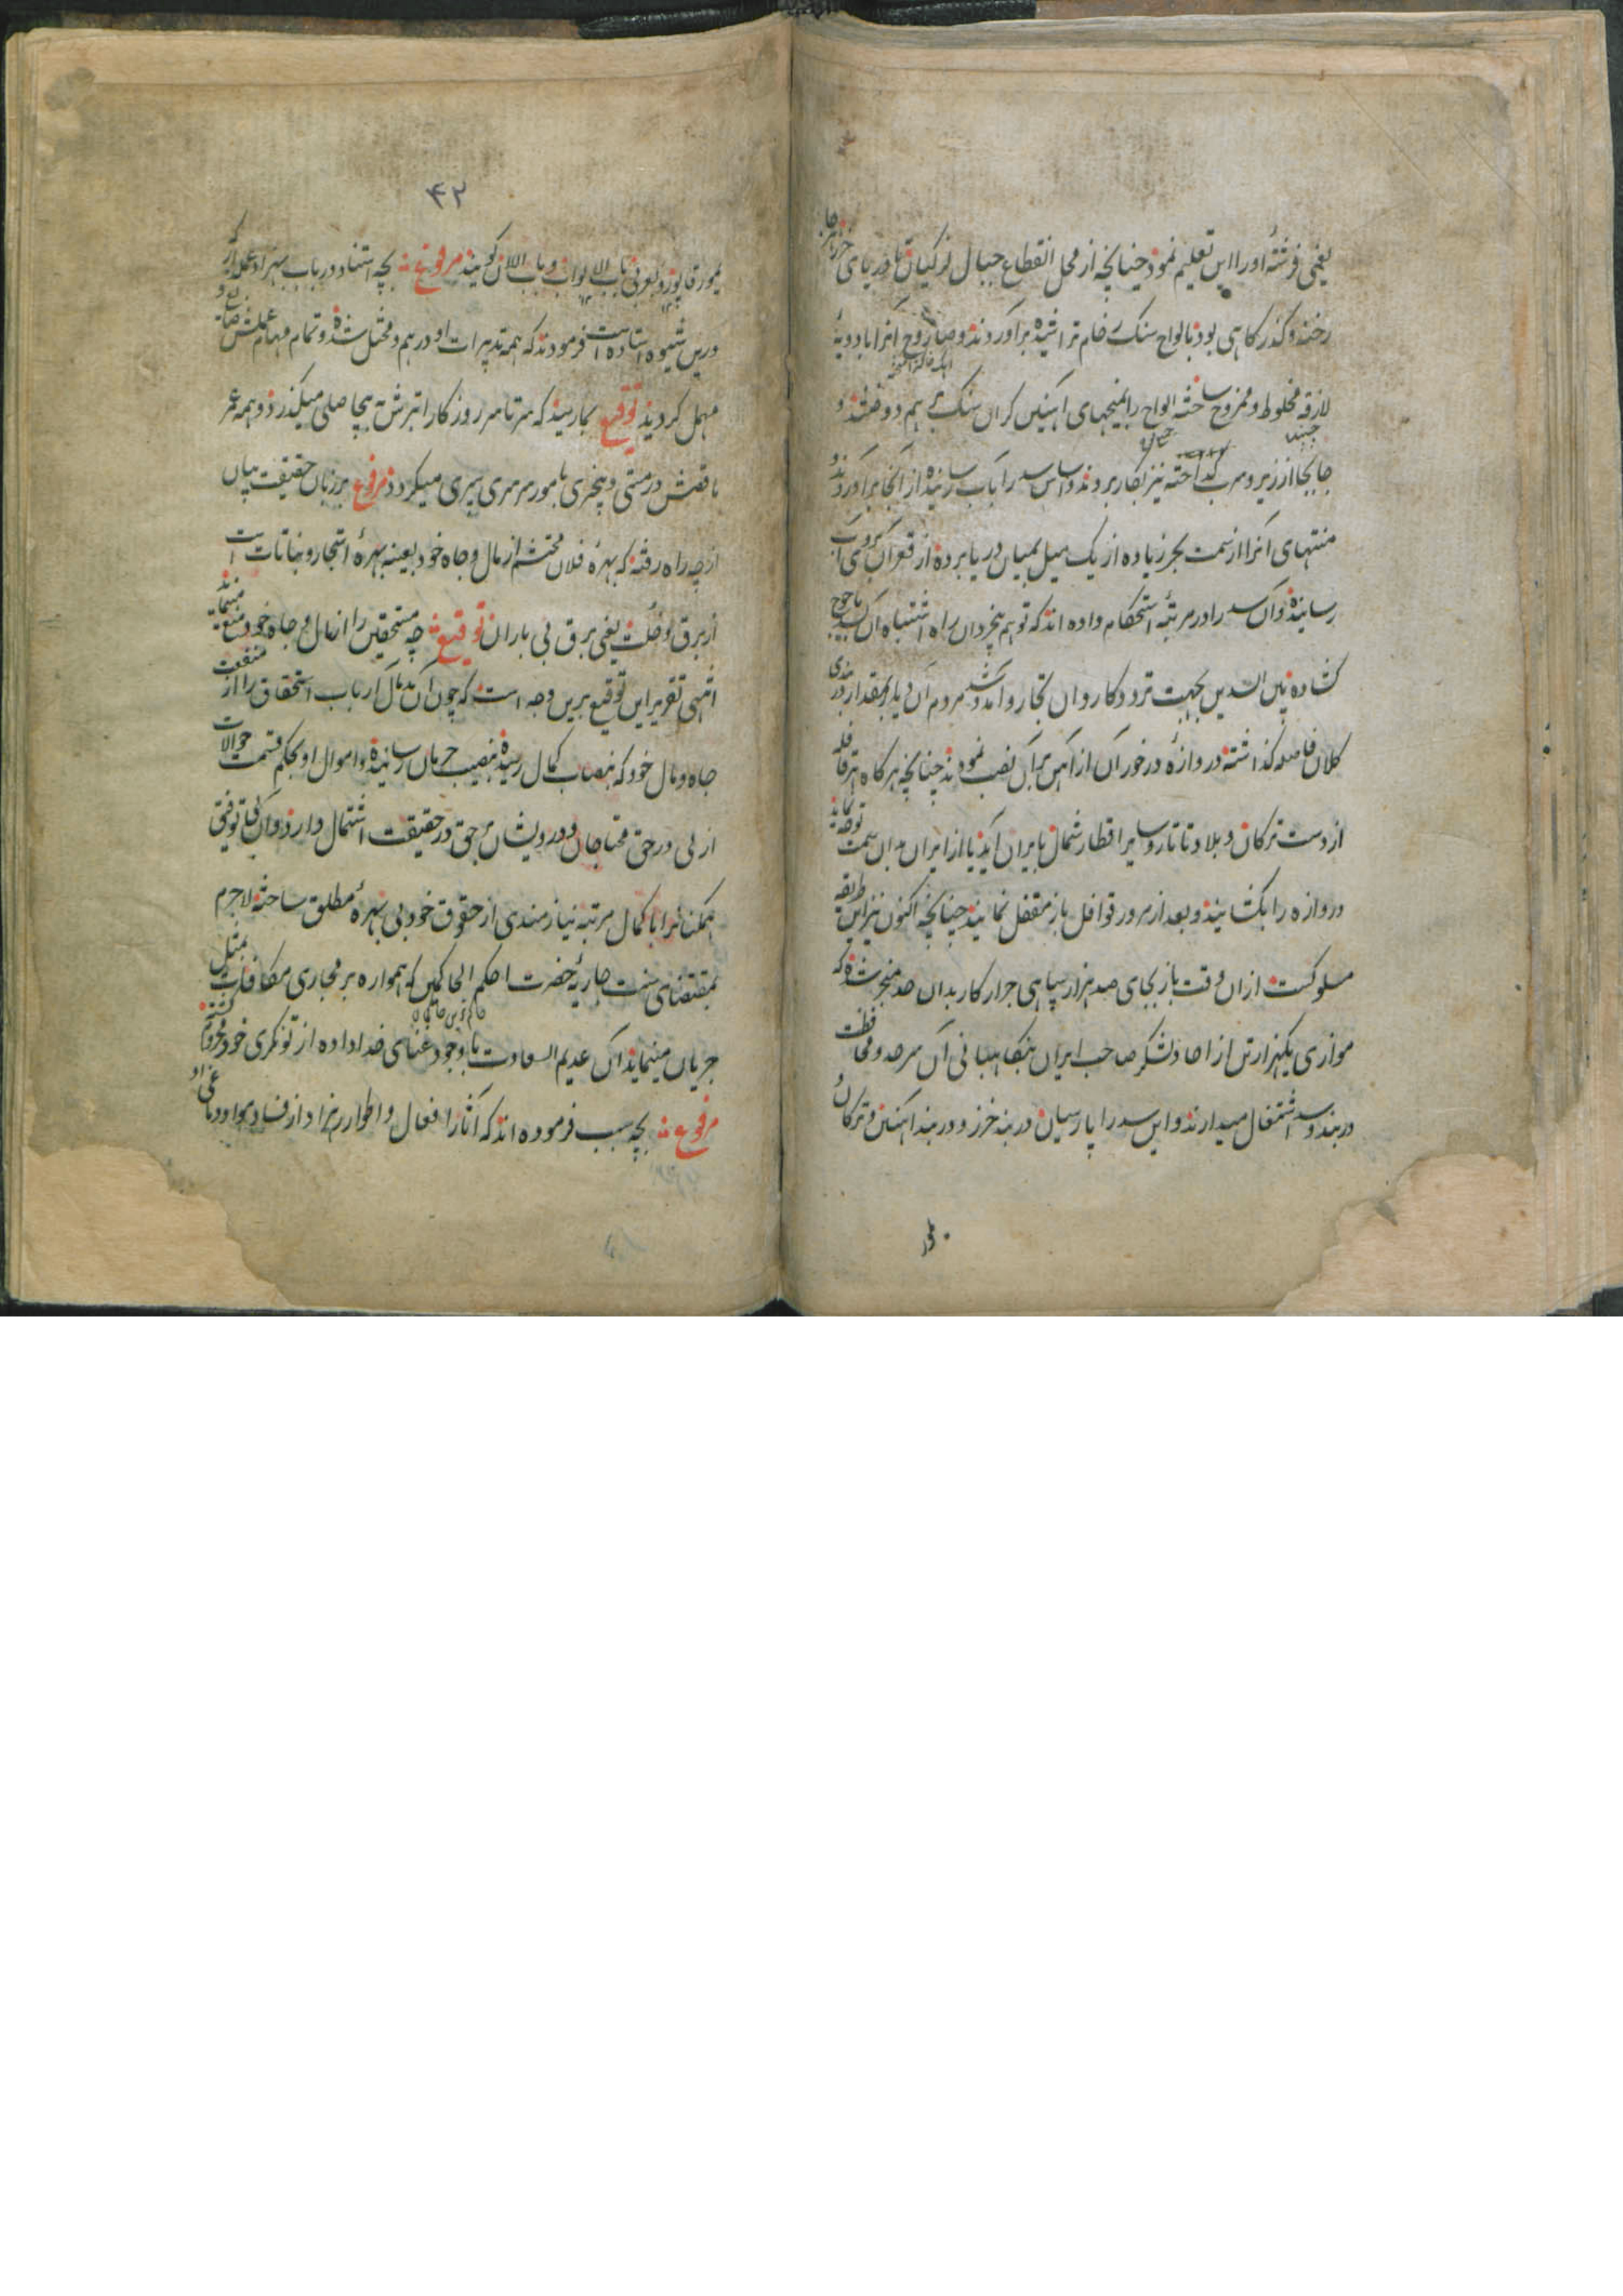 یعنی فرشته او را این تعلیم نمود چنانچه از محل انقطاع جبال لزکیان تا دریای خزر هر جا
رخنه و گذرگاهی بود بالواح سنگ خام تراشیده برآوردند و صاروج آنرا بادویهٔ
لازقه مخلوط و ممزوج ساخته الواح را بمیخهای آهنین گران سنگ بهم دوختند و
جابجا از زیر و سرب گداخته نیز بکار بردند و اساس سد را بآب رسانیده از آنجا برآوردند و
منتهای آنرا از سمت بحر زیاده از یک میل بمیان دریا برده از قعر آن
رسانیده و آن سد را در مرتبهٔ استحکام داده اند که توهم بیخردان راه اشتباه آن بسد یاجوج
گشاده بین السدین بجهت تردد کاروان تجار و آمد و شد مردم آن دیار بمقدار دربندی
کلان فاصله گذاشته دروازهٔ درخور آن از آهن بر آن نصب نمودند چنانچه هر گاه قافله
از دست ترکان و بلاد تاتار و سایر اقطار شمال بایران آید یا از ایران بدان سمت توجه نماید
دروازه را بکشایند و بعد از مرور قوافل باز مقفل نمایند چنانچه اکنون نیز این طریقه
مسلوکست از آن وقت باز بجای صد هزار سپاهی جرار کار بدان حد منجر شده که
موازی یکهزار تن از احاد لشکر صاحب ایران بنگاهبانی آن سرحد و محافظت
دربند و سد اشتغال میدارند و این سد را پارسیان دربند خزر و دربند آهنین و ترکان
۴۲
تیمور قاپو و بعربی باب الابواب و باب اللان گویند مرفوع بچه استناد در باب بهزاد عمله که
درین شیوه استاده است فرمودند که همه تدبیرات او درهم و مختل شده و تمام مهام عملش ضایع و
مهمل گردید توقیع بما رسید که سرتاسر روزگار ابترش به بیحاصلی میگذرد و همه عمر
ناقصش در مستی و بیخبری بامور سرسری سپری میگردد مرفوع بر زبان حقیقت بیان
از چه راه رفته که بهرهٔ فلان محتشم از مال و جاه خود بعینه بهرهٔ اشجار و نباتات است
از برق یعنی برق بی باران توقیع چه مستحقین را از مال و جاه خود منع مینماید
انتهی تقریر این توقیع برین وجه است که چون آن ارباب استحقاق را از منفعت
جاه و مال خود که بنصاب کمال رسیده بنصیب حرمان رسانیده و اموال او بحکم قسمت حوالات
ازلی در حق محتاجان و درویشان بحق در حقیقت اشتمال دارد و آن بی توفیق
همگنانرا با کمال مرتبه نیازمندی از حقوق خود بی بهرهٔ مطلق ساخته لاجرم
بمقتضای سنت جاریهٔ حضرت احکم الحاکمین که همواره بر مجاری مکافات بمثل
جریان مینماید آن عدیم السعادت با وجود غنای خداداده از تونگری خود محروم گشته
مرفوع بچه سبب فرموده اند که آثار افعال و اطوار از فساد هوا و دماغ